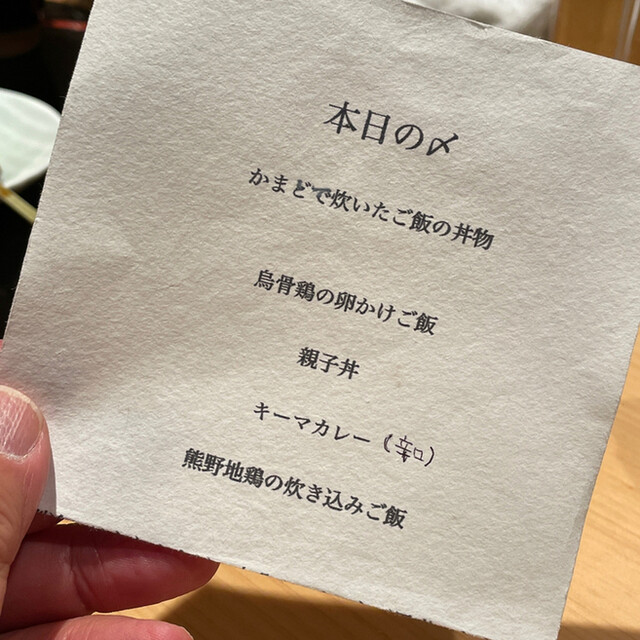 本日の〆
かまどで炊いたご飯の丼物
烏骨鶏の卵かけご飯
親子丼
キーマカレー(辛口)
熊野地鶏の炊き込みご飯